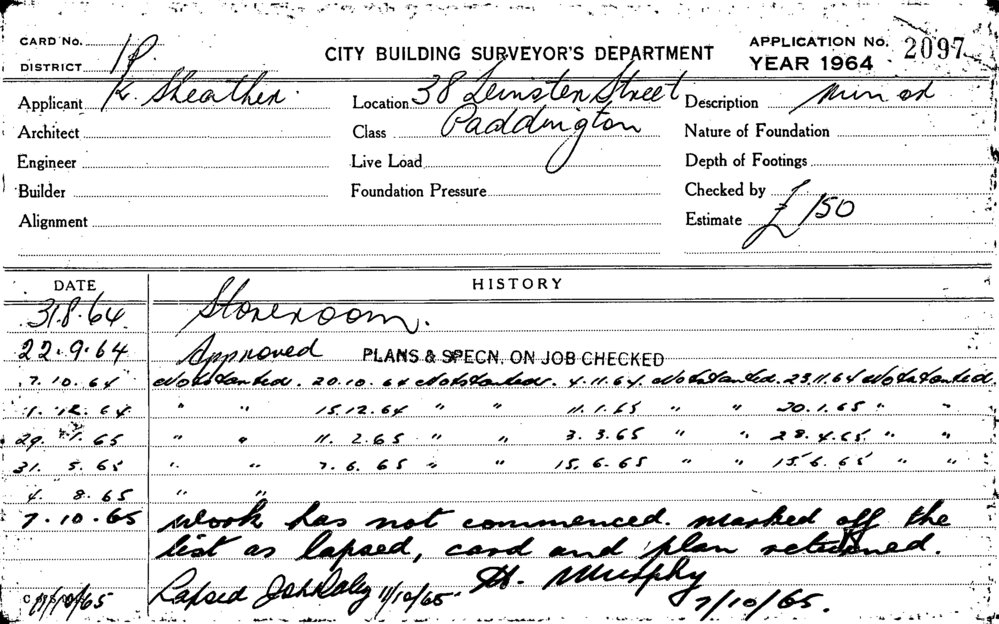 CARD No. 1P
DISTRICT
CITY BUILDING SURVEYOR'S DEPARTMENT
APPLICATION No. 2097
YEAR 1964
Applicant K. Sheather.
Location 38 Leinster Street
Description Minor
Architect
Class Paddington
Nature of Foundation
Engineer
Live Load
Depth of Footings
Builder
Foundation Pressure
Checked by
Alignment
Estimate £150
DATE HISTORY
31.8.64. Storeroom.
22.9.64 Approved PLANS & SPECN. ON JOB CHECKED
7.10.64 Not started. 20.10.64 Not started. 4.11.64. Not started. 23.11.64 Not started
1.12.64 " " 15.12.64 " " 11.1.65 " " 20.1.65 " "
29. 1.65 " " 11.2.65 " " 3.3.65 " " 28.4.65 " "
31. 5.65 " " 7.6.65 " " 15.6.65 " " 15.6.65 " "
4. 8.65 " "
7.10.65 Work has not commenced. marked off the
list as lapsed, card and plan returned.
H. Murphy
7/10/65.
11/10/65 Lapsed 11/10/65